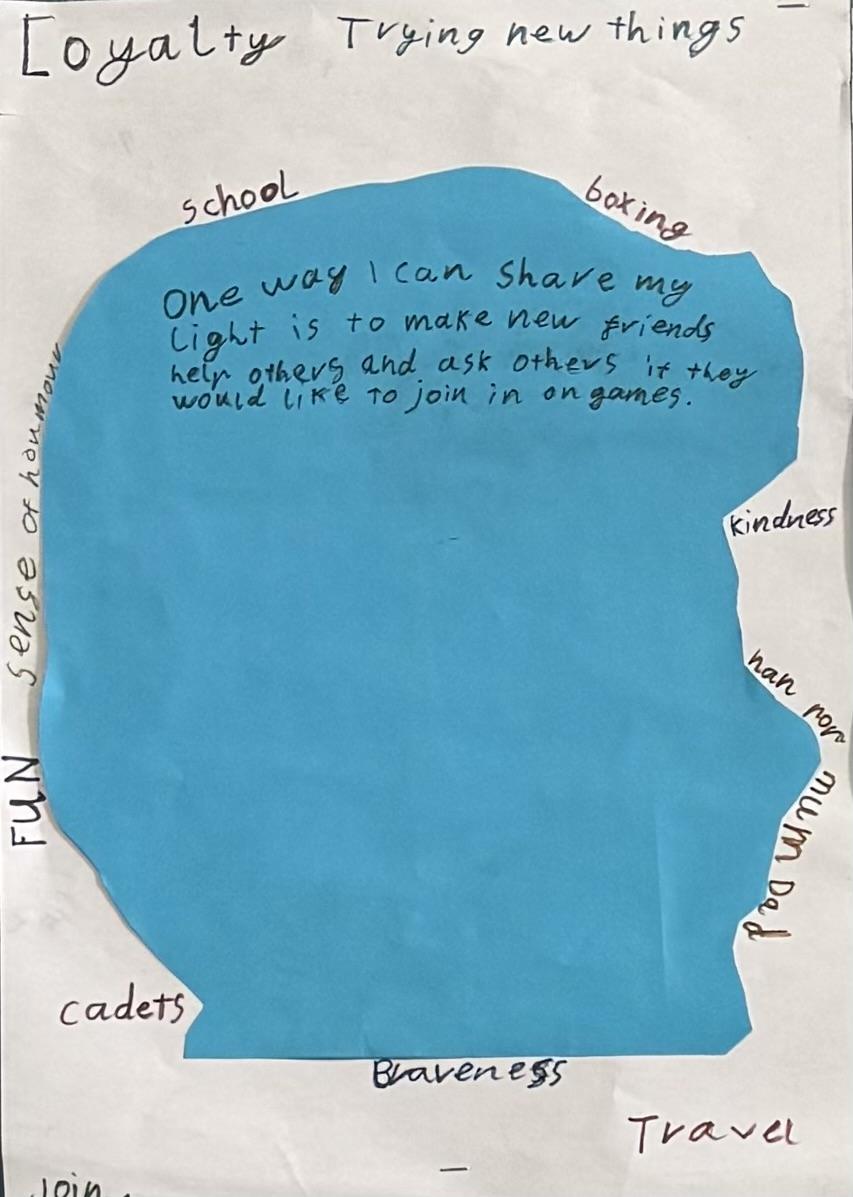 Loyalty Trying new things
school
boxing
One way I can share my
Light is to make new friends
help others and ask others if they
would like to join in on games.
sense of houmour
kindness
nan
mum Dad
FUN
cadets
Braveness
Travel
Join